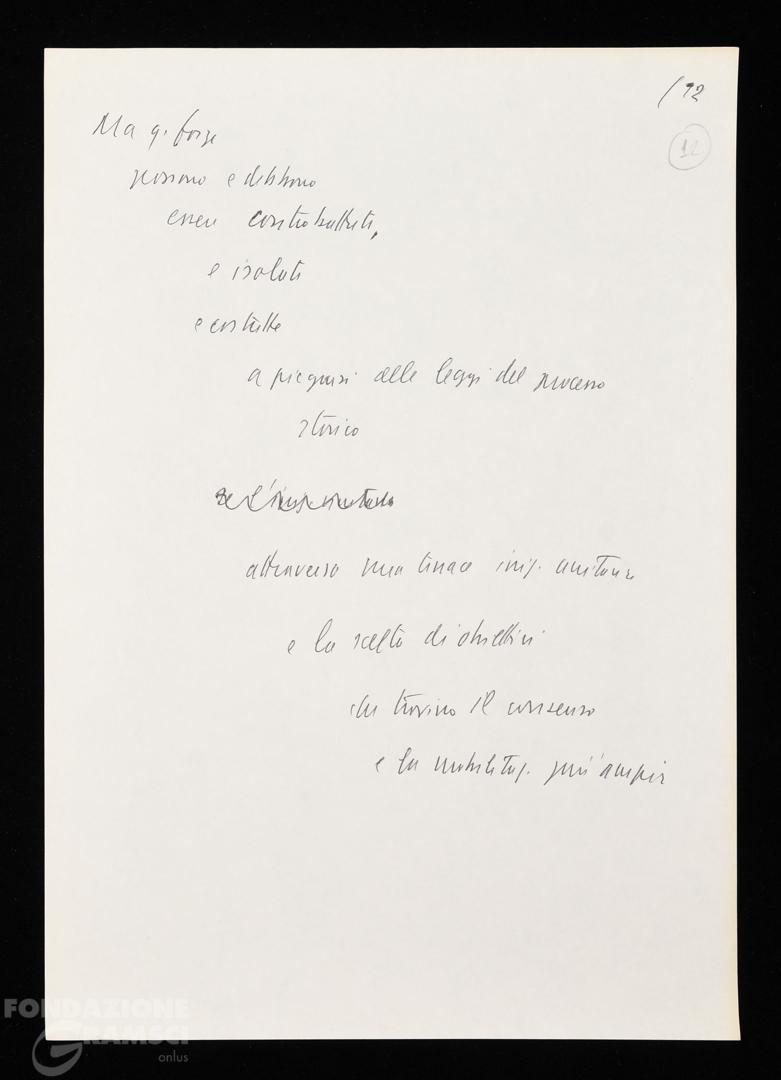 /12
12
Ma q. forze
possono e debbono
essere contrabattute,
e isolate
e costrette
a piegarsi alle leggi del processo
storico
attraverso una tenace iniz. unitaria
e la scelta di obiettivi
che trovino il consenso
e la mobilitaz. più ampia
FONDAZIONE
GRAMSCI
onlus